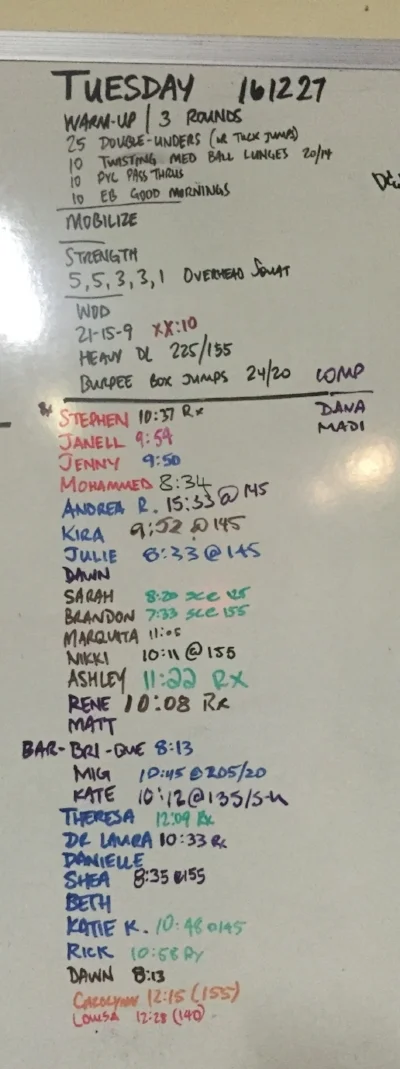 TUESDAY 161227
WARM-UP | 3 ROUNDS
25 DOUBLE-UNDERS (OR TUCK JUMPS)
10 TWISTING MED BALL LUNGES 20/14
10 PVC PASS THRUS
10 EB GOOD MORNINGS
MOBILIZE
STRENGTH
5, 5, 3, 3, 1 OVERHEAD SQUAT
WOD
21-15-9 XX:10
HEAVY DL 225/155
BURPEE BOX JUMPS 24/20
COMP
DANA
MADI
STEPHEN 10:37 Rx
JANELL 9:59
JENNY 9:50
MOHAMMED 8:34
ANDREA R. 15:33 @ 145
KIRA 9:52 @ 145
JULIE 8:33 @ 145
DAWN
SARAH 8:20 SCL
BRANDON 7:33 SCL 155
MARQUITA 11:05
NIKKI 10:11 @ 155
ASHLEY 11:22 RX
RENE 10:08 Rx
MATT
BAR-BRI-QUE 8:13
MIG 10:45 @ 205/20
KATE 10:12 @ 135/
THERESA 12:09 Rx
DR LAURA 10:33 Rx
DANIELLE
SHEA 8:35 @155
BETH
KATIE K. 10:48 @145
RICK 10:58
DAWN 8:13
CAROLYNN 12:15 (155)
LOUISA 12:28 (140)